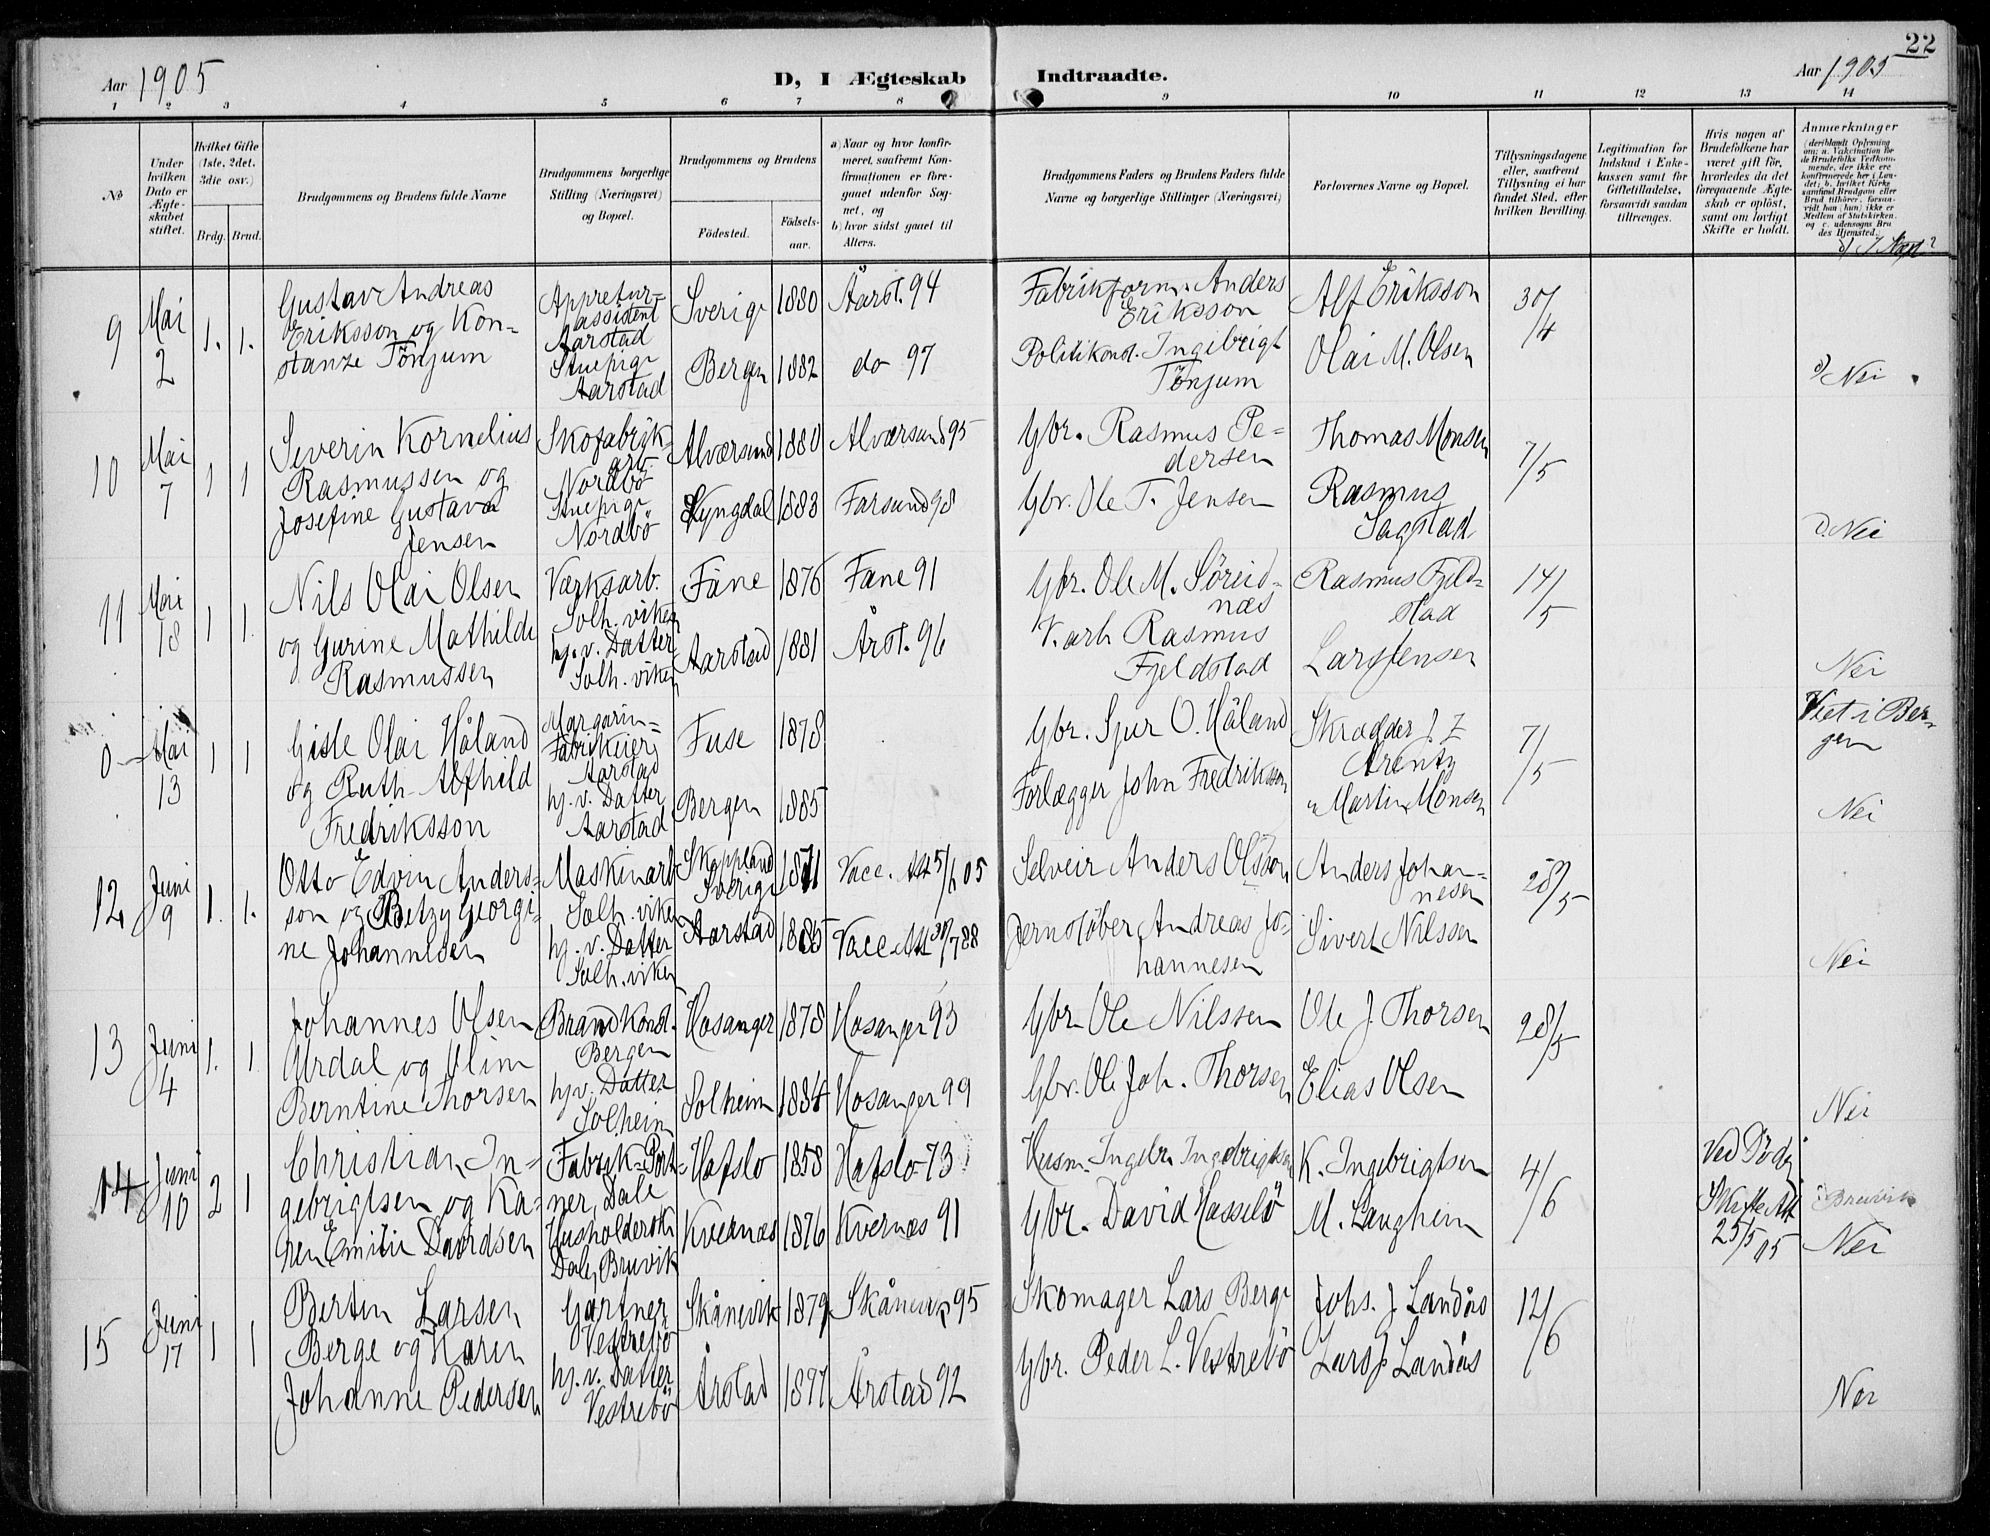 22
Aar 1905
D, I Ægteskab Indtraadte.
Aar 1905
1 2 3 4 5 6 7 8 9 10 11 12 13 14
No
Under hvilken Dato er Ægteskabet stiftet.
Hvilket Gifte (1ste, 2det, 3die osv.)
Brdg. Brud.
Brudgommens og Brudens fulde Navne
Brudgommens borgerlige Stilling (Næringsvei) og Bopæl.
Brudgommens og Brudens
Födested.
Födselsaar.
a) Naar og hvor konfirmeret, saafremt Konfirmationen er foregaaet udenfor Sognet, og
b) hvor sidst gaaet til Alters.
Brudgommens Faders og Brudens Faders fulde Navne og borgerlige Stillinger (Næringsvei)
Forlovernes Navne og Bopæl.
Tillysningsdagene eller, saafremt Tillysning ei har fundet Sted, efter hvilken Bevilling.
Legitimation for Indskud i Enkekassen samt for Giftetilladelse, forsaavidt saadan tiltrænges.
Hvis nogen af Brudefolkene har været gift för, hvorledes da det foregaaende Ægteskab er oplöst, samt om lovligt Skifte er holdt.
Anmærkninger (deriblandt Oplysning om: a. Vakcination for de Brudefolks Vedkommende, der ikke ere konfirmerede her i Landet; b. hvilket Kirkesamfund Brudgom eller Brud tilhörer, forsaavidt han (hun) ikke er Medlem af Statskirken, og c. udensogns Brudes Hjemsted.)
9
Mai
2
1. 1.
Gustav Andreas
Eriksson og Kon-
stanze Tönjum
Appretur-
assistent
Aarstad
Stuepige
Aarstad
Sverige 1880 Aarst. 94
Bergen 1882 do 97
Fabrikform. Anders
Eriksson
Politikonst. Ingebrigt
Tönjum
Alf Eriksson
Olai M. Olsen
30/4
Nei
10
Mai
7
1 1
Severin Kornelius
Rasmussen og
Josefine Gustava
Jensen
Skofabrik-
arb.
Nordbö
Stuepige
Nordbö
Alværsund 1880 Alværsund 95
Lyngdal 1883 Farsund 98
Gbr. Rasmus Pe-
dersen
Gbr. Ole T. Jensen
Thomas Monsen
Rasmus
Sagstad
7/5
Nei
11
Mai
18
1 1.
Nils Olai Olsen
og Gurine Mathilde
Rasmussen
Værksarb.
Solh. viken
hj. v. Datter
Solh. viken
Fane 1876 Fane 91
Aarstad 1881 Årst. 96
Gbr. Ole M. Söreid-
næs
V. arb Rasmus
Fjeldstad
Rasmus Fjeld-
stad
Lars Jensen
14/5
Nei
0
Mai
13
1 1
Gisle Olai Håland
og Ruth Alfhild
Fredriksson
Margarin-
Fabrikeier
Aarstad
hj. v. Datter
Aarstad
Fuse 1878
Bergen 1885
Gbr. Sjur O. Håland
Forlægger John Fredriksson
Skrædder J. Z
Arentz
" Martin Monsen
7/5
Viet i Ber-
gen
Nei
12
Juni
9
1. 1.
Otto Edvin Anders-
son og Betzy Georgi-
ne Johannesen
Maskinarb
Solh. viken
hj. v. Datter
Solh. viken
Skoppland
Sverige 1871 Vacc. Att 5/6 05
Aarstad 1885 Vacc Att 30/7 88
Selveir Anders Olsson
Jernstöber Andreas Jo-
hannesen
Anders Johan-
nesen
Sivert Nilssen
28/5
Nei
13
Juni
4
1. 1
Johannes Olsen
Urdal og Olim
Berntine Thorsen
Brandkonst.
Bergen
hj. v. Datter
Solheim
Hosanger 1878 Hosanger 93
Solheim 1884 Hosanger 99
Gbr Ole Nilssen
Gbr. Ole Joh. Thorsen
Ole J. Thorsen
Elias Olsen
28/5
Nei
14
Juni
10
2 1
Christian In-
gebrigtsen og Ka-
ren Emilie Davidsen
Fabrik-Port-
ner, Dale
Husholderske
Dale, Bruvik
Hafslo 1858 Hafslo 73
Kvernæs 1876 Kvernæs 91
Husm. Ingebr. Ingebrigtsen
Gbr. David Hasselö
K. Ingebrigtsen
M. Laugheim
4/6
Ved Död
Skifte Att
25/5 05
Bruvik
Nei
15
Juni
17
1 1
Bertin Larsen
Berge og Karen
Johanne Pedersen
Gartner
Vestrebö
hj. v. Datter
Vestrebö
Skånevik 1879 Skånevik 95
Årstad 1897 Årstad 92
Skomager Lars Berge
Gbr. Peder L. Vestrebö
Johs. J. Landås
Lars J Landås
12/6
Nei